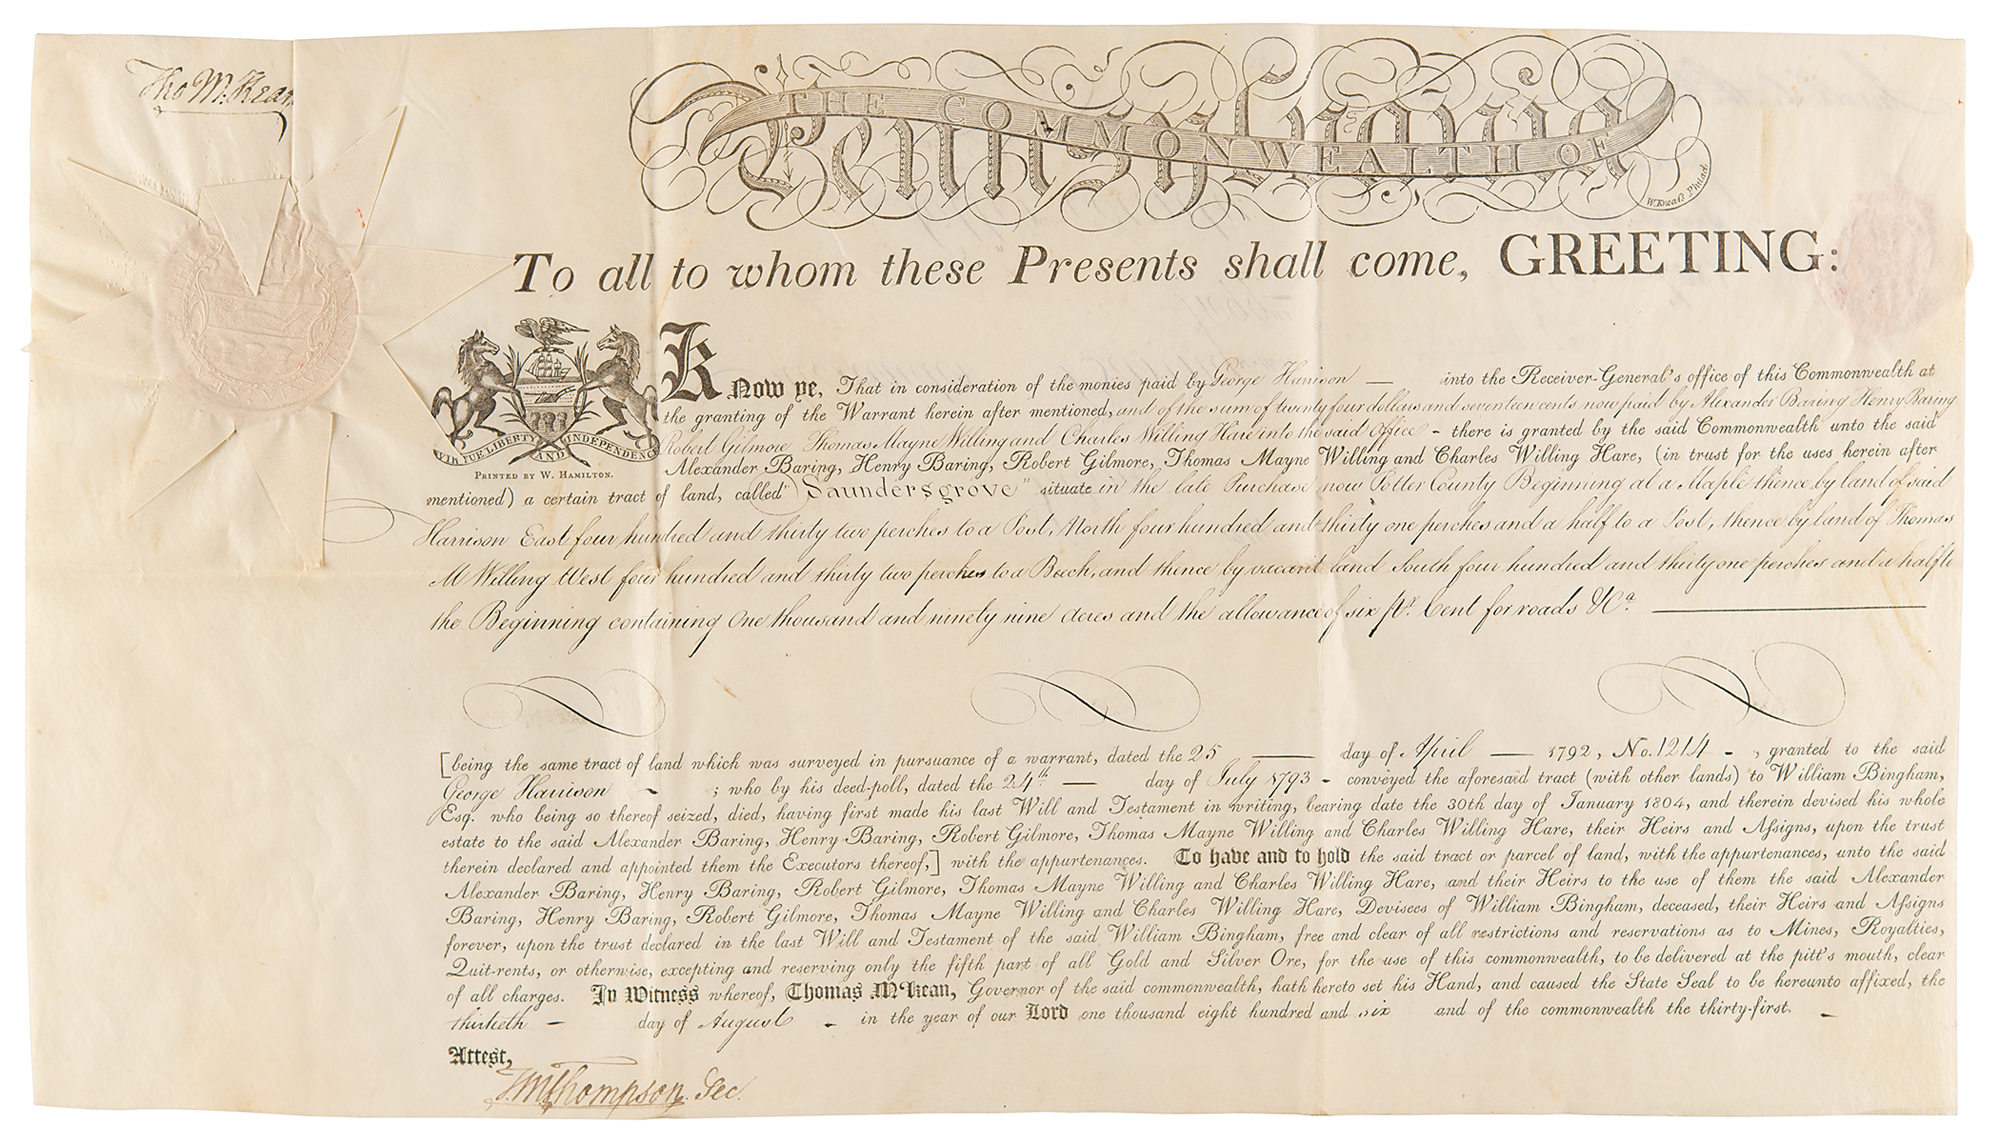 Tho M:Kean
THE COMMONWEALTH OF
Pennsylvania
W. Kneaſs Philad.
To all to whom these Presents shall come, GREETING:
VIRTUE LIBERTY AND INDEPENDENCE
PRINTED BY W. HAMILTON.
Know ye, That in consideration of the monies paid by George Harrison — into the Receiver-General's office of this Commonwealth at
the granting of the Warrant herein after mentioned, and of the sum of twenty four dollars and seventeen cents now paid by Alexander Baring Henry Baring
Robert Gilmore Thomas Mayne Willing and Charles Willing Hare into the said office - there is granted by the said Commonwealth unto the said
Alexander Baring, Henry Baring, Robert Gilmore, Thomas Mayne Willing and Charles Willing Hare, (in trust for the uses herein after
mentioned) a certain tract of land, called "Saundersgrove" situate in the late Purchase now Potter County Beginning at a Maple thence by land of said
Harrison East four hundred and thirty two perches to a Post, North four hundred and thirty one perches and a half to a Post, thence by land of Thomas
M Willing West four hundred and thirty two perches to a Beech, and thence by vacant land South four hundred and thirty one perches and a half to
the Beginning containing One thousand and ninety nine acres and the allowance of six pr. Cent for roads &ca. —
[being the same tract of land which was surveyed in pursuance of a warrant, dated the 25 — day of April — 1792, No. 1214 - , granted to the said
George Harrison - ; who by his deed-poll, dated the 24th — day of July 1793 - conveyed the aforesaid tract (with other lands) to William Bingham,
Esq. who being so thereof seized, died, having first made his last Will and Testament in writing, bearing date the 30th day of January 1804, and therein devised his whole
estate to the said Alexander Baring, Henry Baring, Robert Gilmore, Thomas Mayne Willing and Charles Willing Hare, their Heirs and Aſsigns, upon the trust
therein declared and appointed them the Executors thereof,] with the appurtenances. To have and to hold the said tract or parcel of land, with the appurtenances, unto the said
Alexander Baring, Henry Baring, Robert Gilmore, Thomas Mayne Willing and Charles Willing Hare, and their Heirs to the use of them the said Alexander
Baring, Henry Baring, Robert Gilmore, Thomas Mayne Willing and Charles Willing Hare, Devisees of William Bingham, deceased, their Heirs and Aſsigns
forever, upon the trust declared in the last Will and Testament of the said William Bingham, free and clear of all restrictions and reservations as to Mines, Royalties,
Quit-rents, or otherwise, excepting and reserving only the fifth part of all Gold and Silver Ore, for the use of this commonwealth, to be delivered at the pitt's mouth, clear
of all charges. In Witness whereof, Thomas M'Kean, Governor of the said commonwealth, hath hereto set his Hand, and caused the State Seal to be hereunto affixed, the
thirtieth - day of August - in the year of our Lord one thousand eight hundred and six and of the commonwealth the thirty-first. -
Attest,
T. M Thompson. Sec.